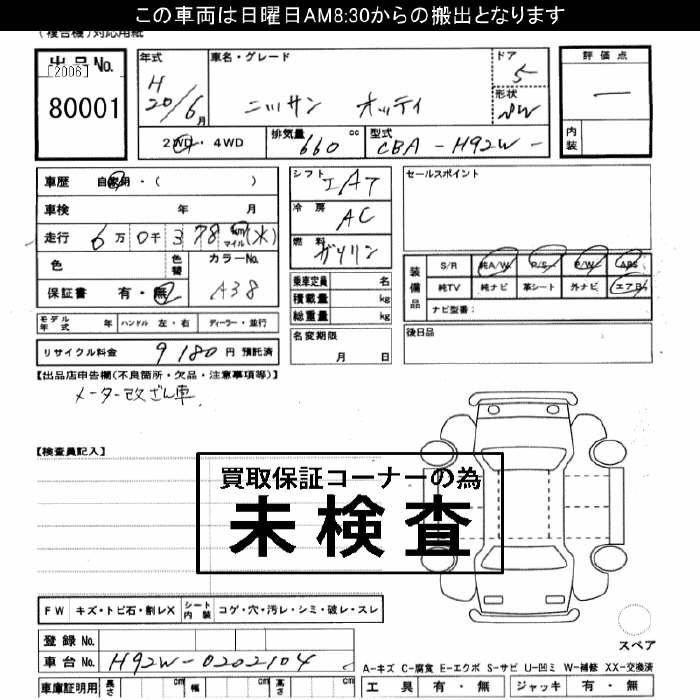 この車両は日曜日AM8:30からの搬出となります
(複合機)対応用紙
出品No.
[2006]
80001
年式
H
20/6月
車名・グレード
ニッサン オッティ
ドア
5
形状
評価点
内装
2WD・4WD
排気量
660 cc
型式
CBA - H92W -
車歴 自家用・( )
車検 年 月
走行 6万0千378 km マイル
色
色替
カラーNo.
A38
保証書 有・無
シフト
冷房
AC
燃料
ガソリン
乗車定員 名
積載量 kg
総重量 kg
セールスポイント
装備品
S/R 純A/W P/S P/W ABS
純TV 純ナビ 革シート 外ナビ エアB
ナビ型番:
モデル年式 年 ハンドル 左・右 ディーラー・並行
リサイクル料金 9180円 預託済
名変期限
月 日
後日品
【出品店申告欄(不良箇所・欠品・注意事項等)】
メーター改ざん車
【検査員記入】
買取保証コーナーの為
未検査
FW キズ・トビ石・割レX シート内装 コゲ・穴・汚レ・シミ・破レ・スレ
スペア
登録No.
車台No. H92W-0202104
A-キズ C-腐食 E-エクボ S-サビ U-凹ミ W-補修 XX-交換済
車庫証明用 長さ cm 幅 cm 高さ cm
工具 有・無 ジャッキ 有・無